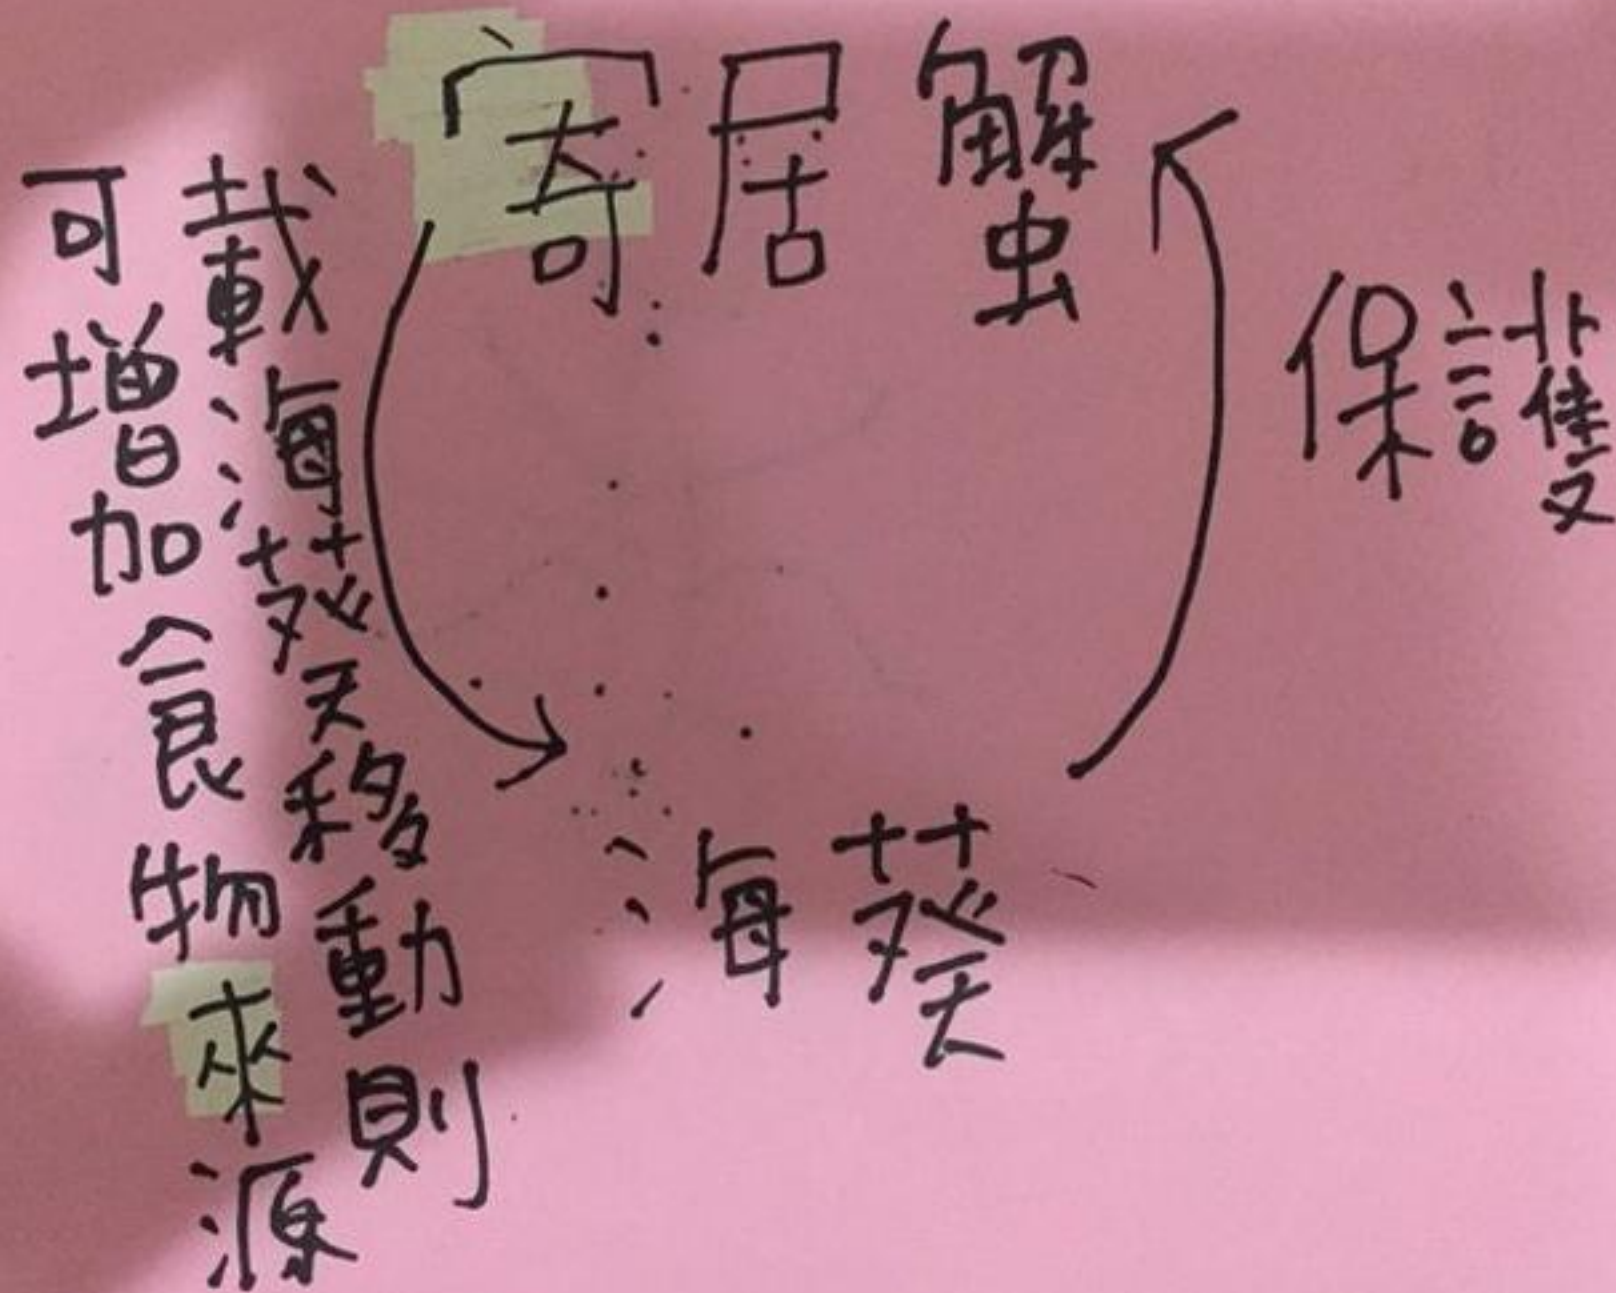 寄居蟹
保護
載海葵移動則
可增加食物來源
海葵